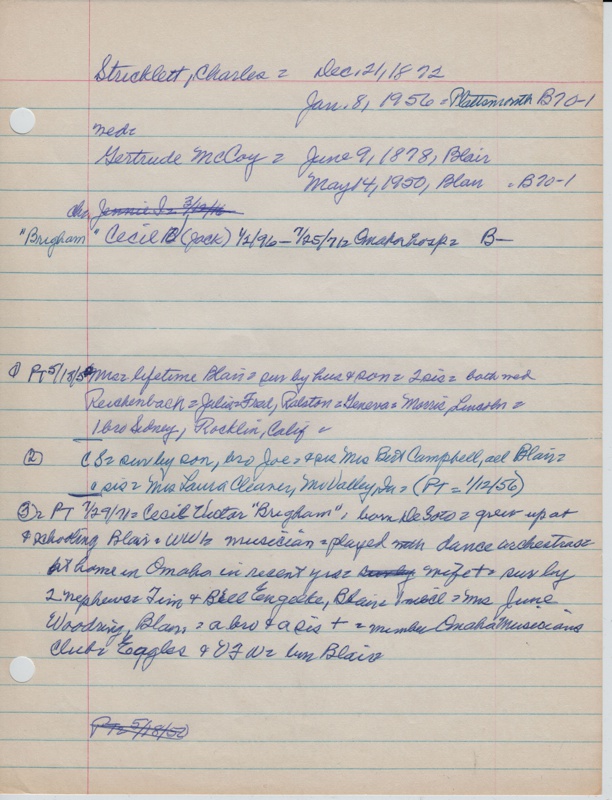 Stricklett, Charles = Dec. 21, 1872
Jan. 8, 1956 = Plattsmouth B70-1
med=
Gertrude McCoy = June 9, 1878, Blair
May 14, 1950, Blair = B70-1
ch= Jennie I= 3/9/16
"Brigham" Cecil B (Jack) 1/2/96 - 7/25/71= Omaha hosp= B-
① PT 5/18/50 Ms= lifetime Blair = sur by hus & son = 2 sis = both med
Reichenbach = Julia = Fred, Ralston = Geneva = Morris, Lincoln =
1 bro Sidney, Rocklin, Calif =
② CS = sur by son, bro Joe = & sis Mrs Bert Campbell, all Blair =
sis = Mrs Laura Cleaver, Mo Valley, Ia = (PT = 1/12/56)
③= PT 7/29/71 = Cecil Victor "Brigham", born DeSoto = grew up at
& schooling Blair = WW1= musician = played with dance orchestras =
at home in Omaha in recent yrs = sur by wife + = sur by
2 nephews = Tim & Bill Engelke, Blair = 1 niece = Ms June
Woodring, Blair = a bro & a sis + = member Omaha Musicians
Club = Eagles & VFW = burr Blair
PT= 5/18/50